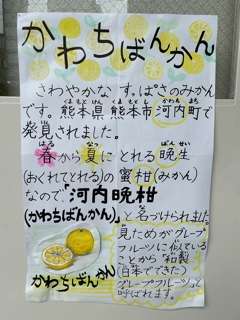 かわちばんかん
さわやかな すっぱさのみかん
です。熊本県 熊本市 河内町で
くまもとけん くまもとし かわち まち
発見されました。
はる なつ ばんせい
春から夏にとれる晩生
(おくれてとれる)の蜜柑(みかん)
なので「河内晩柑
(かわちばんかん)」と名づけられました
見ためがグレープ
フルーツに似ている
ことから「和製
(日本でできた)
グレープフルーツ」と
呼ばれます。
かわちばんかん